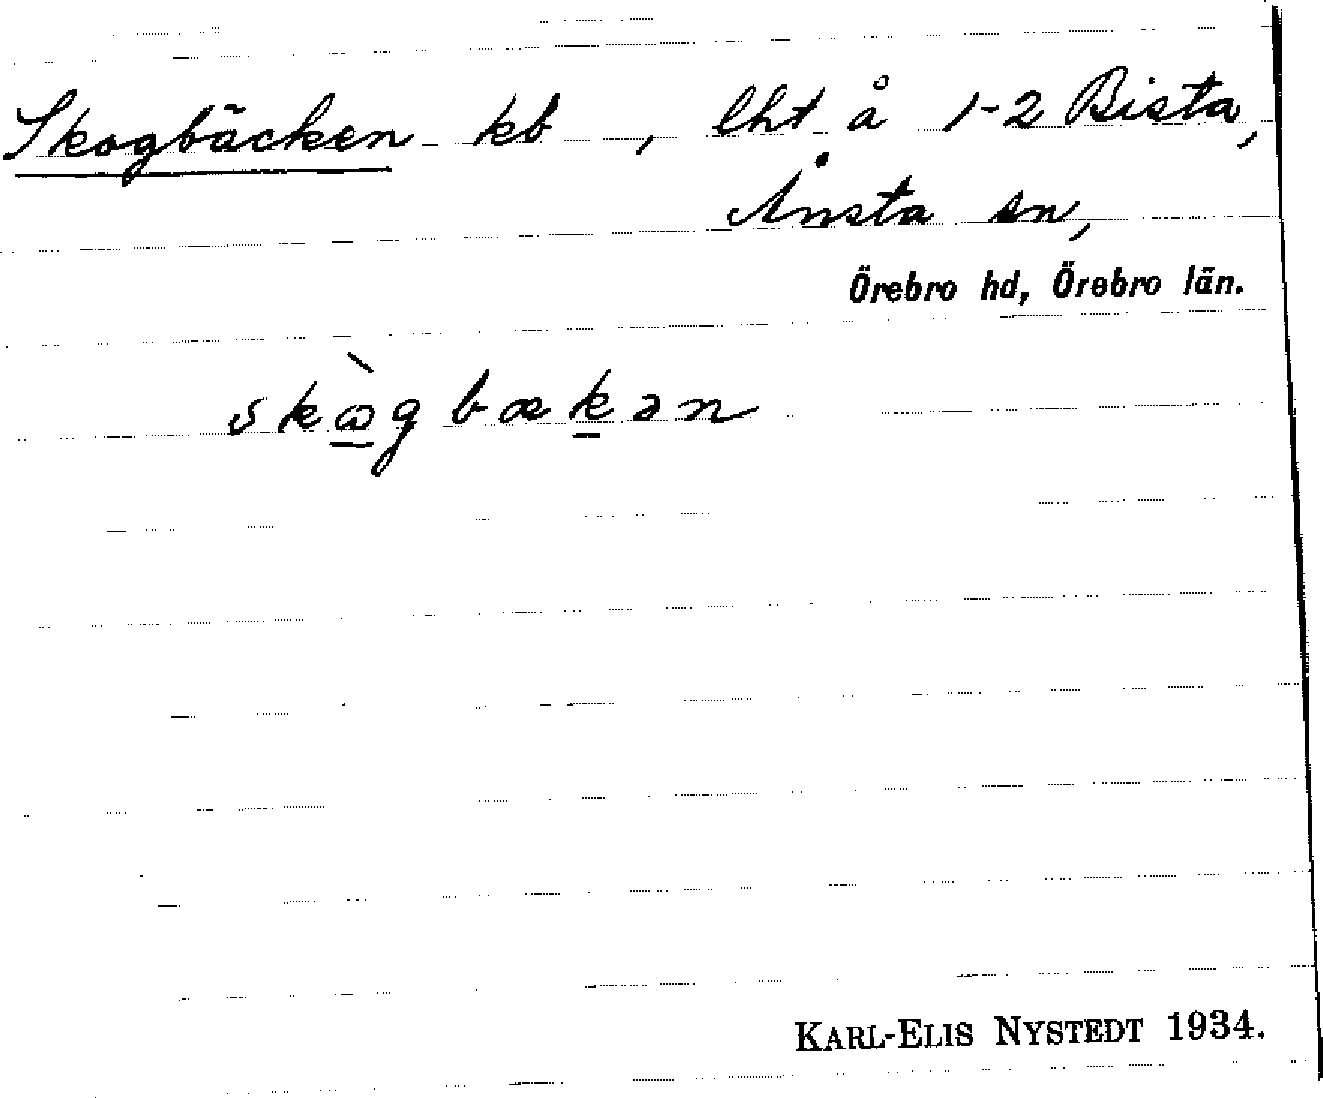 Skogbäcken kb , lht å 1-2 Bista,
Ånsta sn,
Örebro hd, Örebro län.
skɷ̀gbækən
KARL-ELIS NYSTEDT 1934.